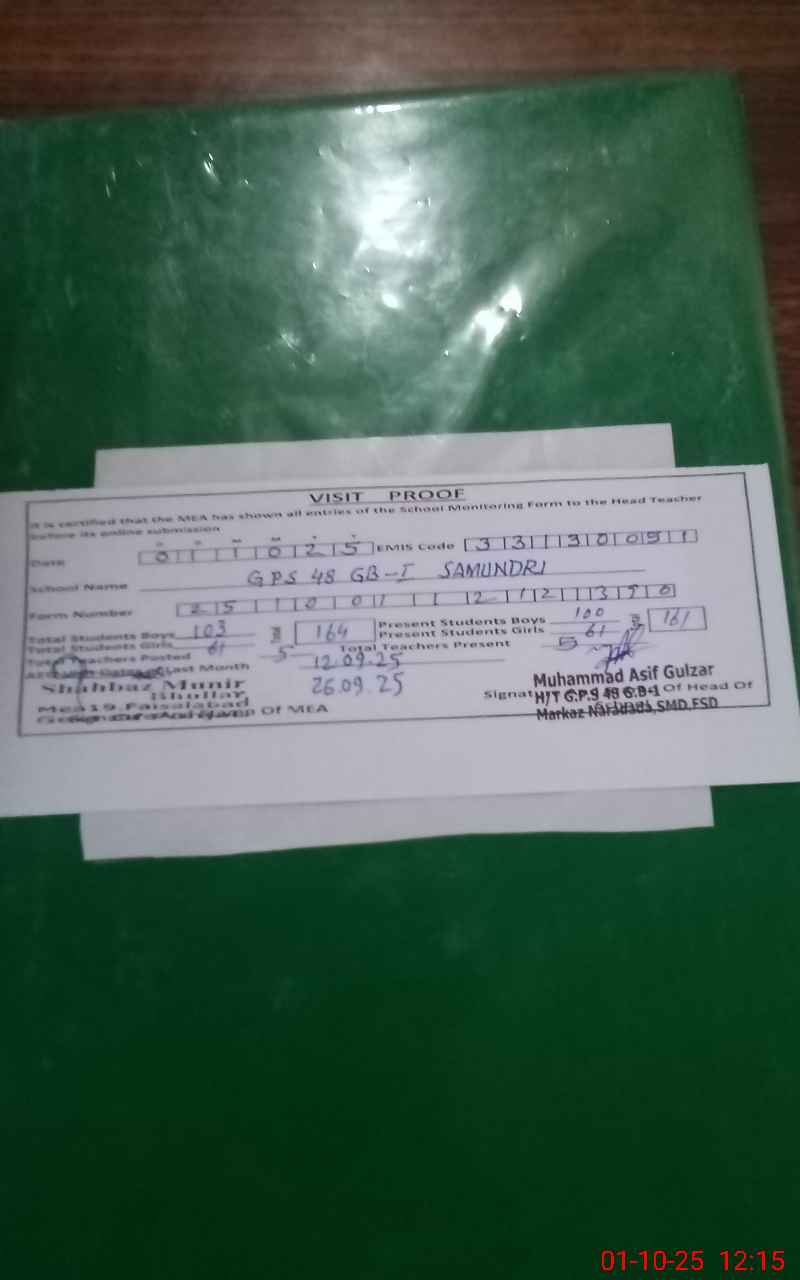 VISIT PROOF
It is certified that the MEA has shown all entries of the School Monitoring Form to the Head Teacher
before its online submission
D D M M Y Y
Date 0 1 1 0 2 5 EMIS Code 3 3 1 3 0 0 5 1
School Name GPS 48 GB-I SAMUNDRI
Form Number
Total Students Boys 103 164 Present Students Boys 100 161
Total Students Girls 61 Present Students Girls 61
Total Teachers Posted 5 Total Teachers Present 5
Last Month 12.09.25
26.09.25
Shahbaz Munir
Bhullar
Mea19, Faisalabad
Of MEA
Muhammad Asif Gulzar
H/T G.P.S 48 G.B-1 Of Head Of
Markaz Naradada,SMD,FSD
01-10-25 12:15